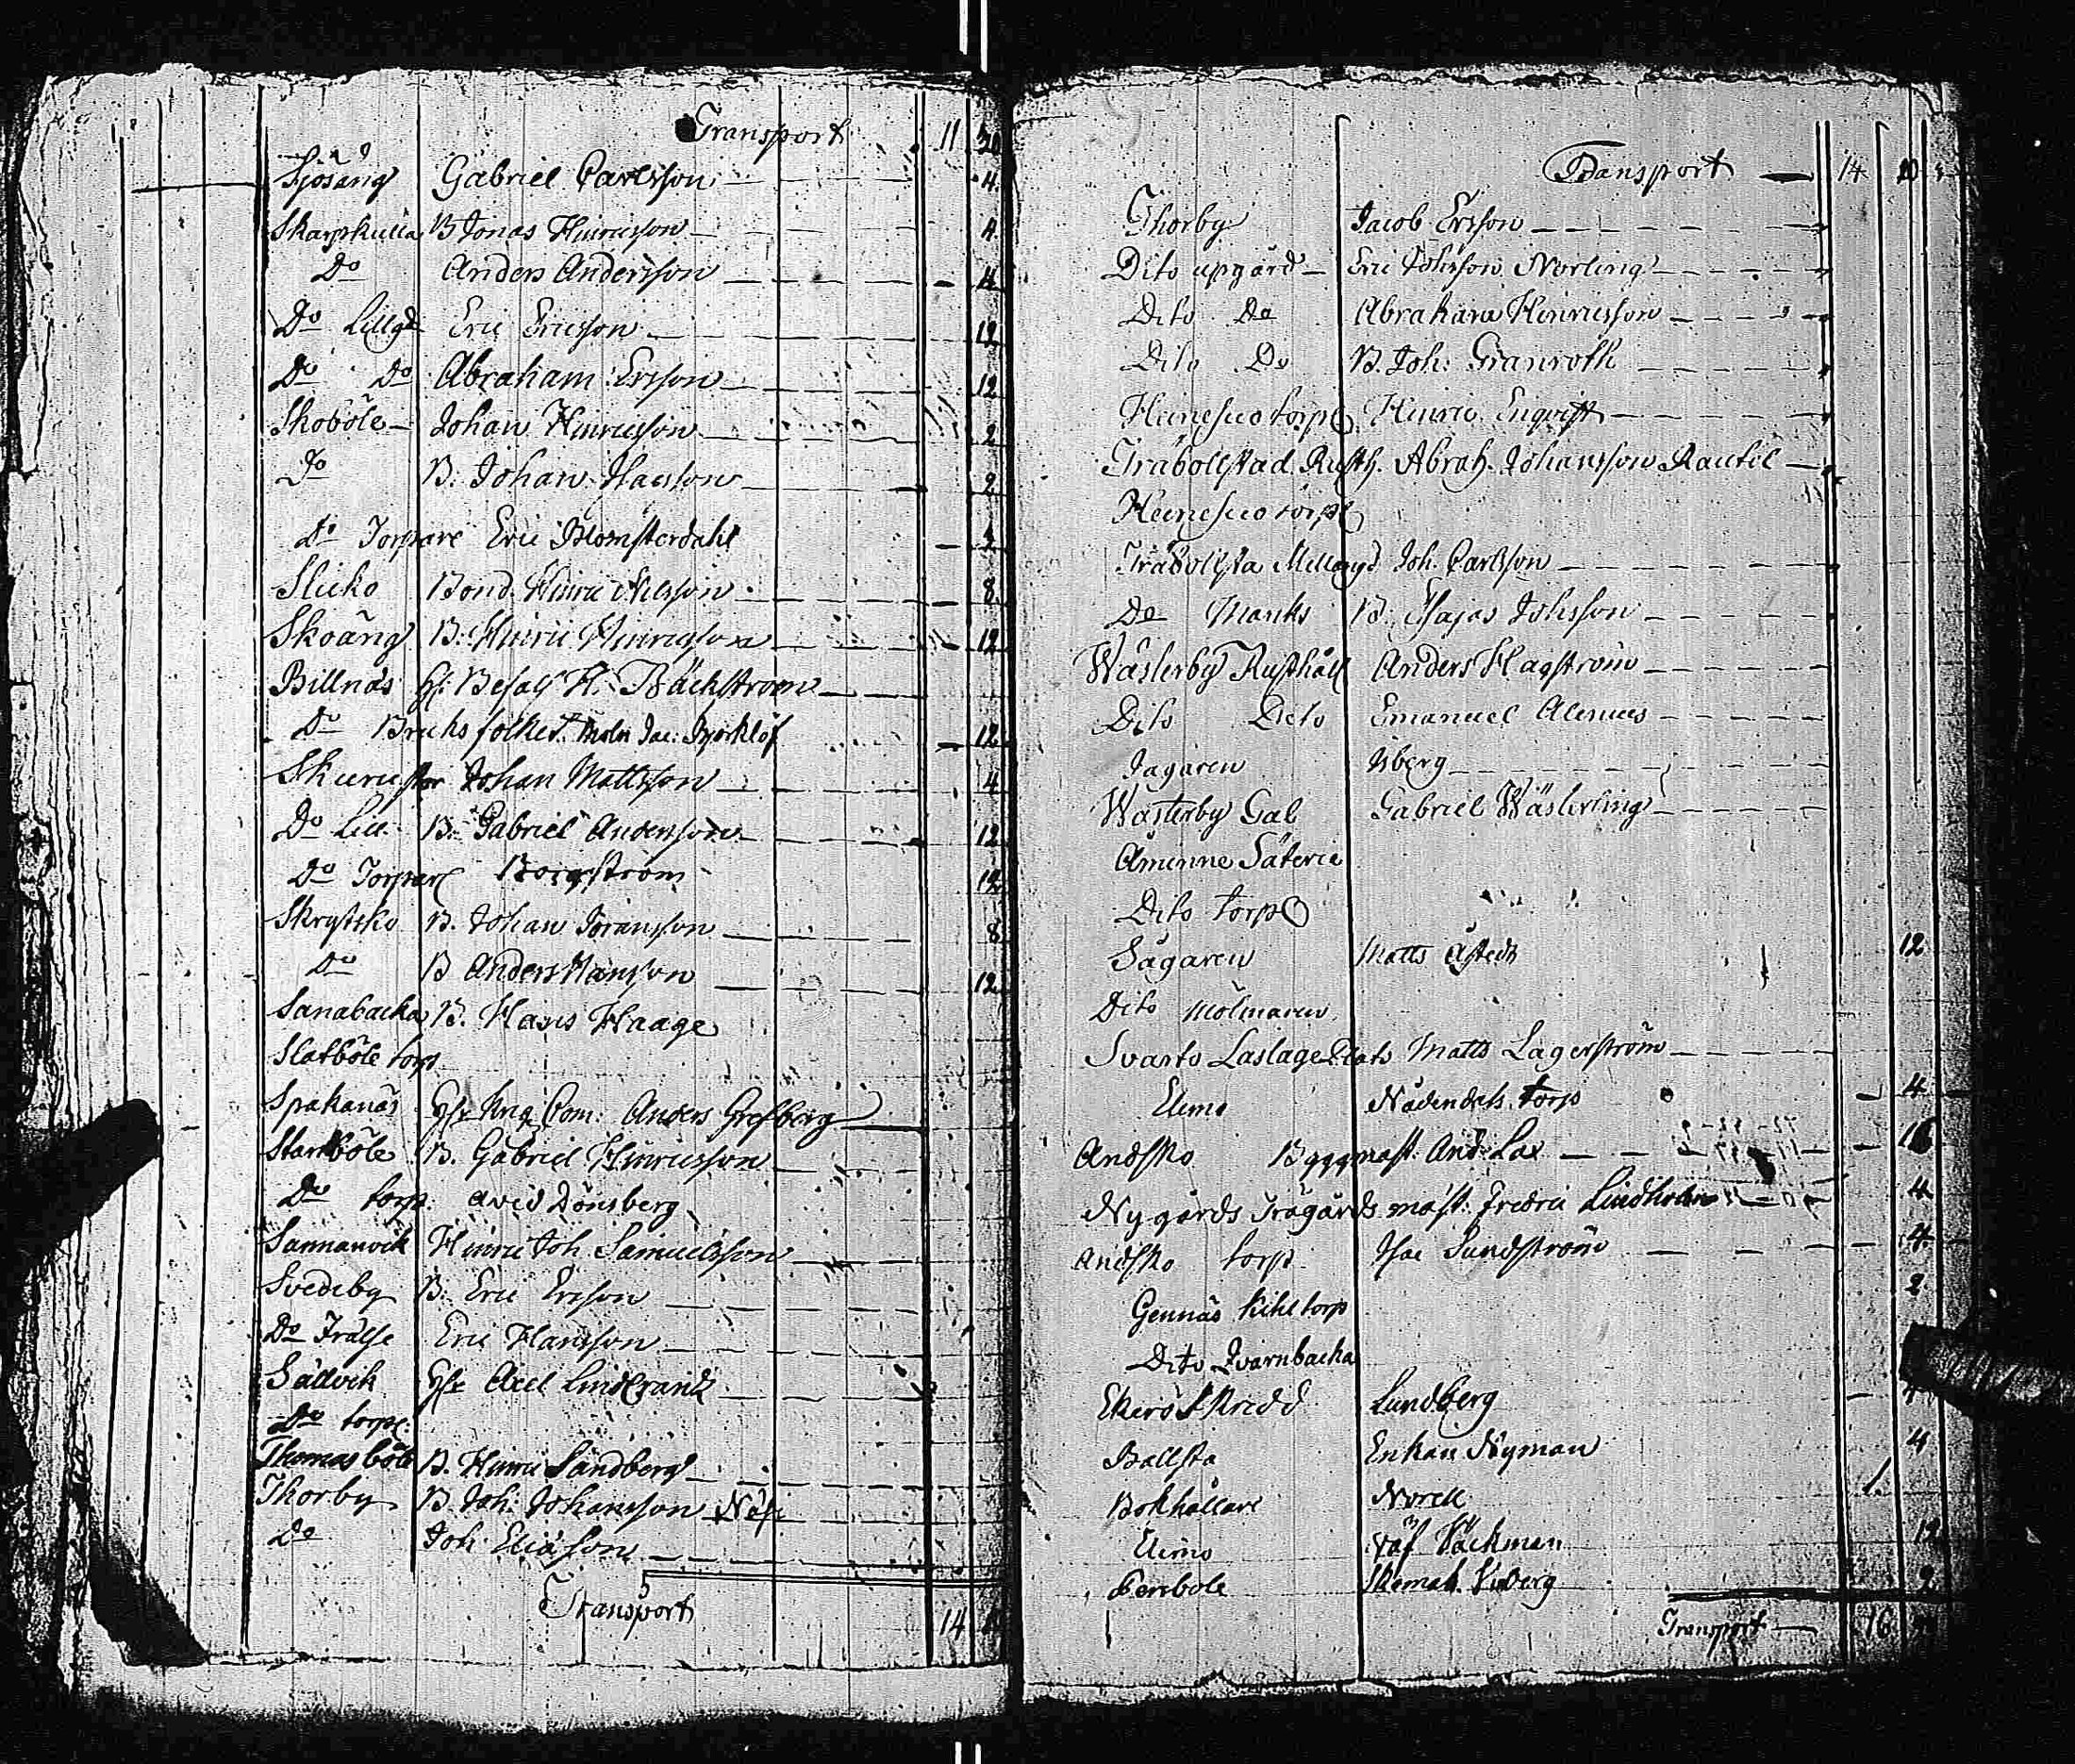 Transport 11 20
Sjösäng Gabriel Carlsson 4
Skarpkulla B Jonas Hinricsson 4
Do Anders Andersson 4
Do Lillgd Eric Ericsson 12
Do Do Abraham Ersson 12
Skoböle Johan Hinricsson 2
Do B. Johan 2
Do Torpare Eric Blomsterdahl
Slicko Bond. Hinric Nilsson 8
Skoäng B. Hinric Hinricsson 12
Billnäs H. Bäckström
Do Bruks folket Jac: Björklöf 12
Johan Mattsson 4
Do Lill B. Gabriel Andersson 12
Do Torpare Borgström 12
Skrystko B. Johan Jöransson 8
Do B Anders Hansson 12
Sanabacka B. Hans Haage
Slatböle torp
Spakanäs Com: Anders Grefberg
Starkböle B. Gabriel Hinricsson
Do torp. Avid Dönsberg
Sannanvik Hinric Joh Samuelsson
Svediby B. Eric Ersson
Do Frälse Eric Hansson
Sällvik Axel
Do torp
Thomasböle B. Hinric Sandberg
Thorby B. Joh: Johansson
Do Joh: Eliasson
Transport 14
Transport 14 20
Thorby Jacob Ersson
Dito upgård Eric Johsson Norling
Dito Do Abraham Hinricsson
Dito Do B. Joh: Granroth
Hinric Enqvist
Gräbollstad Rusth. Abrah. Johansson
Joh. Carlsson
Do Marks B. Esajas Johsson
Wästerby Rusthåll Anders Hagström
Dito Dito Emanuel
Jagaren Isberg
Wästerby Gab Gabriel Wästerling
Åminne Säterie
Dito torp
Sågaren Matts 12
Dito mölnaren
Svarto Laslage Plats Matts Lagerström
Elimo Nådendals torp 4
Andsko Byggmäst. And: Lax 16
Nygårds Trägårds mäst: Fredric Lindholm 4
Andsko torp Isac Sundström 4
Gennäs torp 2
Dito Qvarnbacka
Ekerö Lundberg
Ballsta Enkan Nyman 4
Bokhållare Norell 1.
Elimo Bäckman 12
2
Transport 16